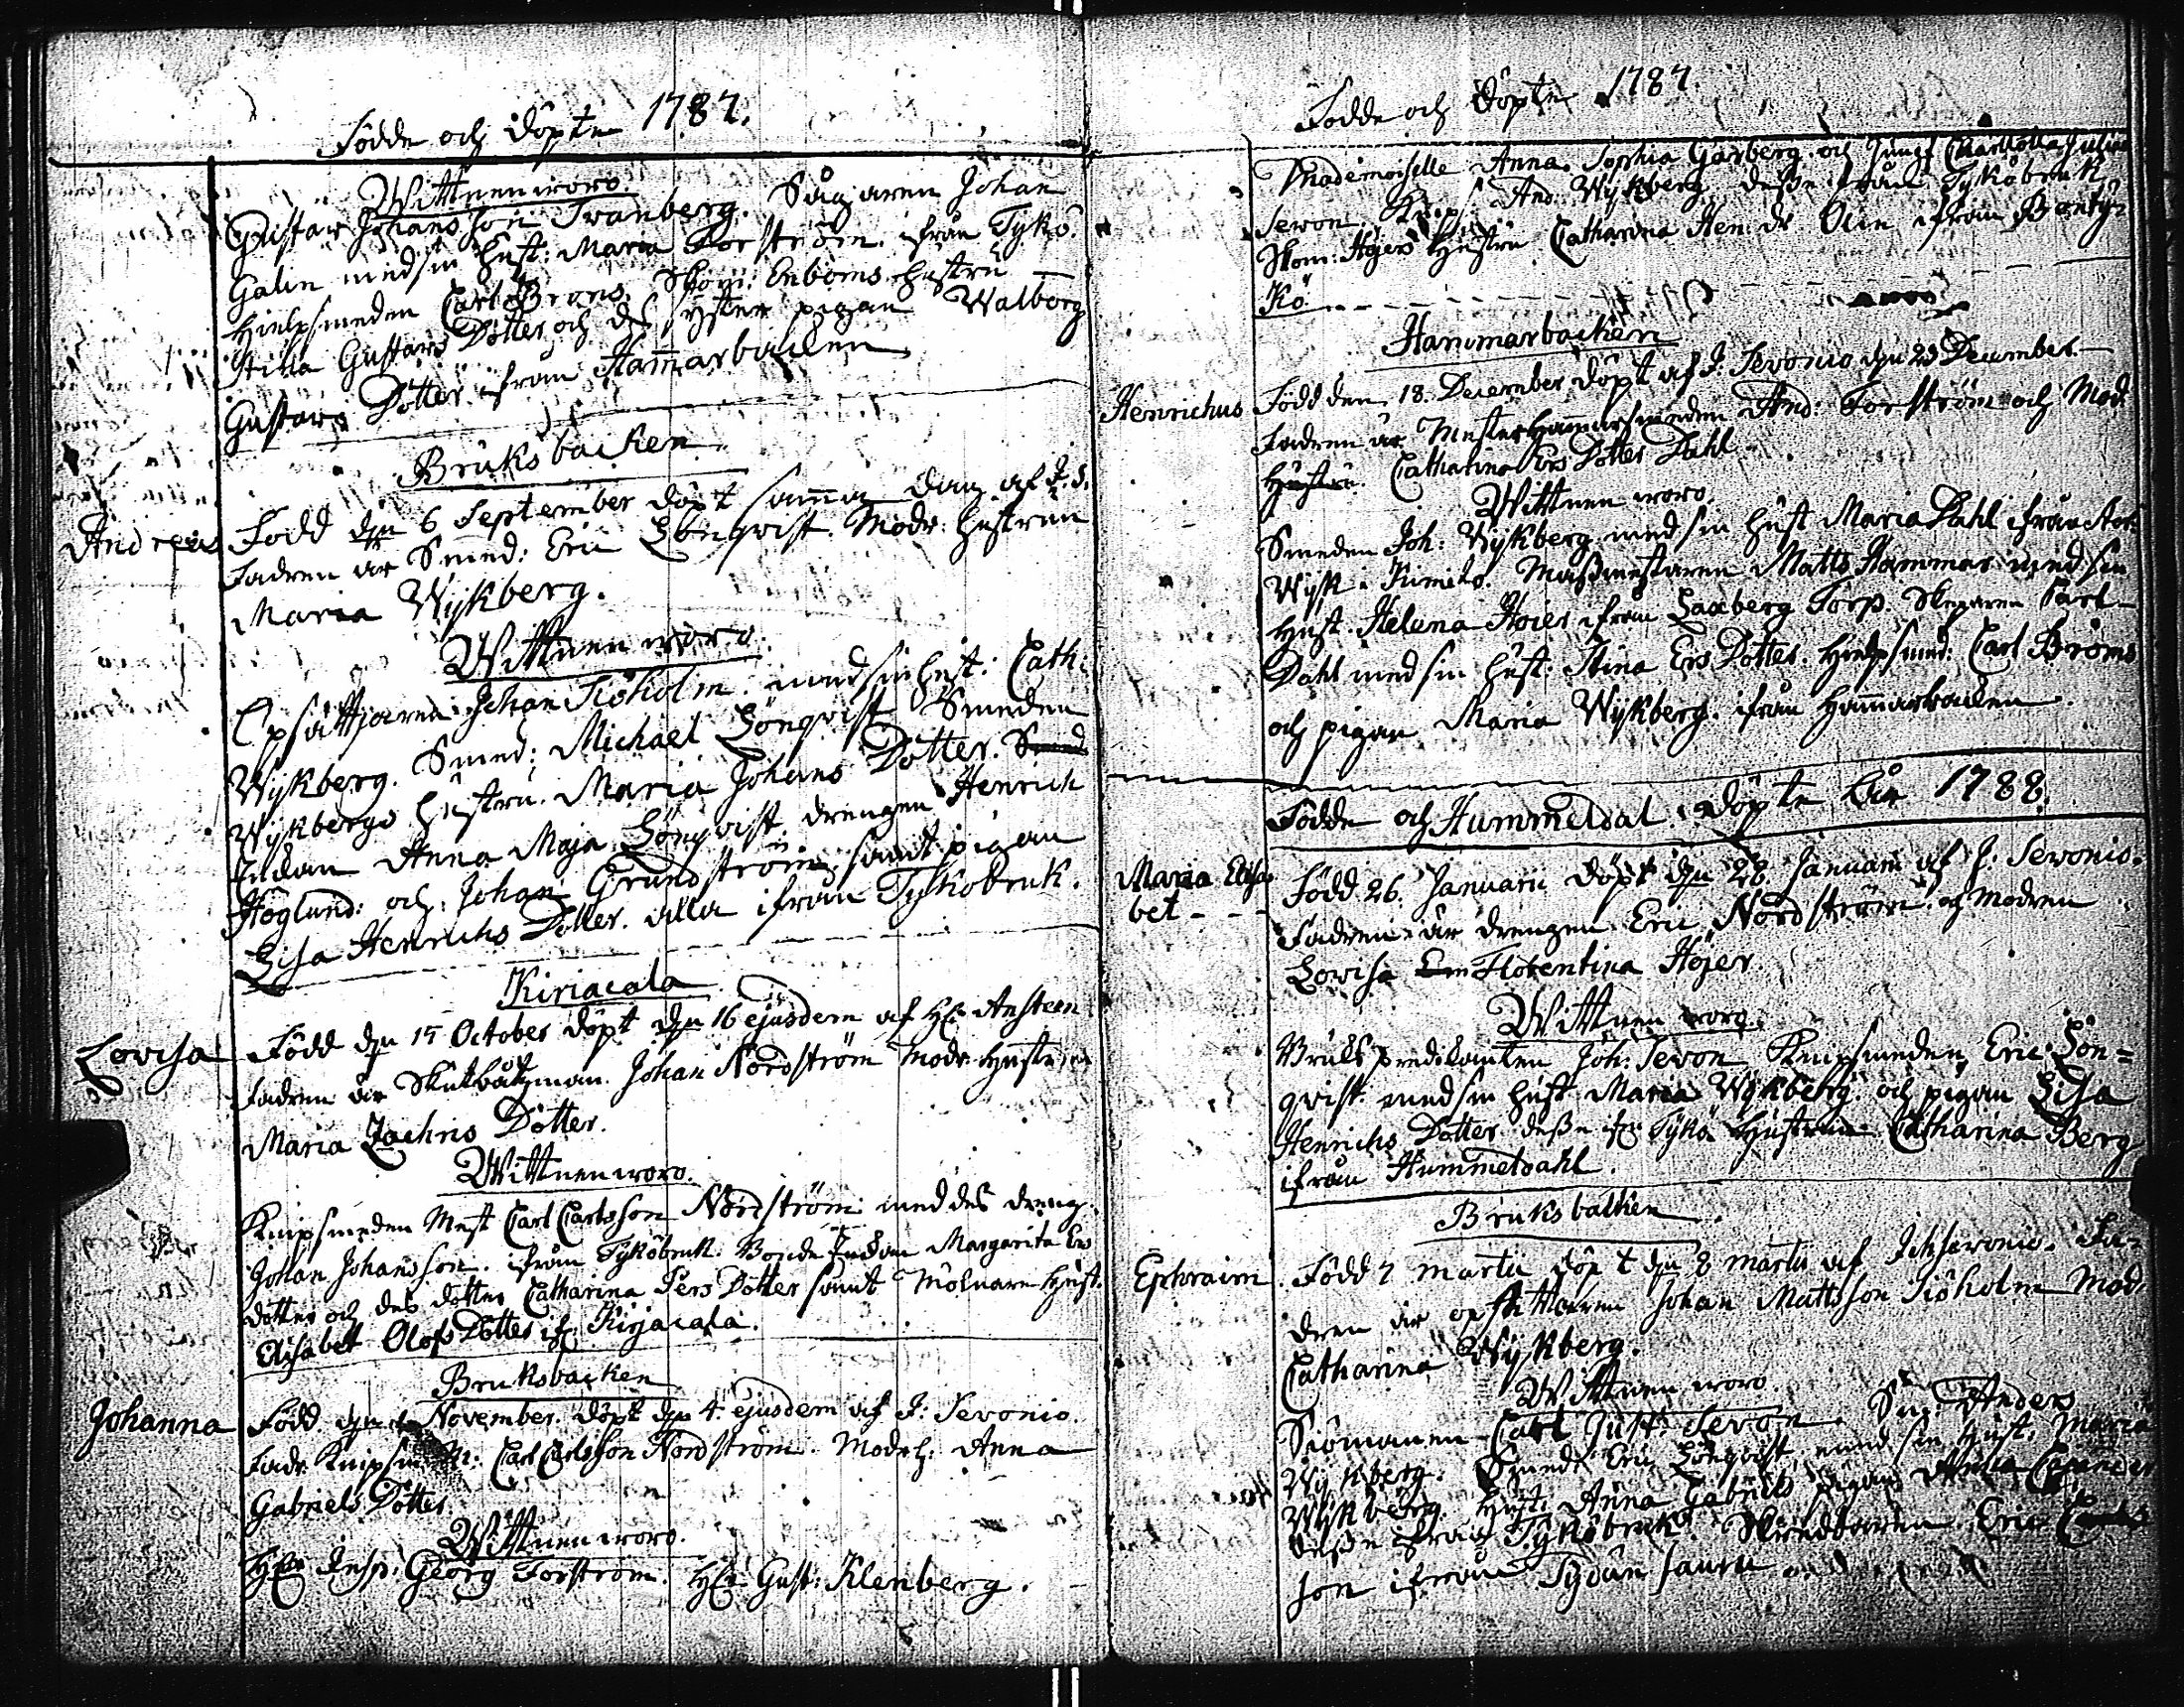 Födde och döpte 1787.
Wittnen woro.
Gustaw Johansson Tranberg. Sågaren Johan
Galin med sin hust: Maria Forström. ifrån Tyko.
Hielpsmeden Carl Broms. Enboms hustru
Stina Gustavs Dotter och des syster pigan Walborg
Gustavs Dotter ifrån Hammarbacken
Bruksbacken
Andreas
Född den 6 September döpt samma dag af J. S.
Fadren är Smed: Eric Lönqvist. Modr: hustrun
Maria Wykberg.
Wittnen woro.
Opsättjaren Johan Siöholm med sin hust: Cath:
Wykberg. Smed: Michael Lönqvist Smeden
Wykbergs hustru. Maria Johans Dotter. Smed
Enkan Anna Maja Lönqvist. drengen Henrich
Höglund: och Johan Grundström, samt pigan
Lisa Henrichs Dotter. alla ifrån Tykobruk.
Kiriacala
Lovisa
Född den 15 October döpt den 16 ejusdem af Hr Ahsteen
Fadren är Skutbåtzman. Johan Nordström Modr. Hustrun
Maria Zachris Dotter.
Wittnen woro.
Knipsmeden Mest Carl Carlsson Nordström med des dreng
Johan Johansson. ifrån Tykobruk. Bonde Enkan Margarita Ers
dotter och des dotter Catharina Pers Dotter samt Mölnaren Hust.
Elisabet Olofs Dotter if: Kirjacala.
Bruksbacken
Johanna
Född den November. döpt den 4. ejusdem af J: Sevonio.
Fadr. Knipsm M: Carl Carlsson Nordström. Modr h: Anna
Gabriels Dotter
Wittnen woro.
Hr Insp: Georg Forström. Hr Gust: Klenberg.
Födde och Döpte 1787.
Mademoiselle Anna Sophia Garberg. och Jungf Charlotta Juliana
Sevon. And. Wykberg. desse ifrån Tykobruk
Hom: Höjers Hustru Catharina Hen: dr Olin ifrån
Kö.
Hammarbacken
Henrichus
Född den 18. December döpt af J. Sevonio den 23 December.
Fadren är Mester hammarsmeden And: Forström och Mod:
Hustru. Catharina Ers Dotter Dahl
Wittnen woro.
Smeden Joh: Wykberg med sin hust Maria Dahl ifrån
Wijk i Kimito. Masmestaren Matts Hammar med sin
hust. Helena Höier ifrån Laxberg Torp. Skeparen Carl
Dahl med sin hust: Stina Ers Dotter. Hielpsmed: Carl Broms
och pigan Maria Wykberg. ifrån Hammarbacken.
Födde och Hummeldal. döpte åår 1788.
Maria Elisa
bet
Född 26. Januarii döpt den 28 Januarii af J: Sevonio.
Fadren är drengen Eric Nordström. och modren
Lovisa Em Florentina Höjer.
Wittnen woro.
Bruks predikanten Joh: Sevon Knipsmeden Eric Lön=
qvist. med sin hust Maria Wykberg. och pigan Lisa
Henrichs Dotter desse ifr: Tyko Hustrun Catharina Berg
ifrån Hummeldahl.
Bruksbacken
Ephraim
Född 7 Martii döpt den 8 Martii af Joh Sevonio. Fa=
dren är opsättjaren Johan Mattsson Siöholm Mod:
Catharina Wykberg.
Wittnen woro.
Siömanen Carl Gust: Sevon. Anders
Wykberg. Smed: Eric Lönqvist, med sin hust. Maria
Wykberg. Hust: Anna Gabriels pigan Anna
desse ifrån Tykobruk. Eric
son ifrån